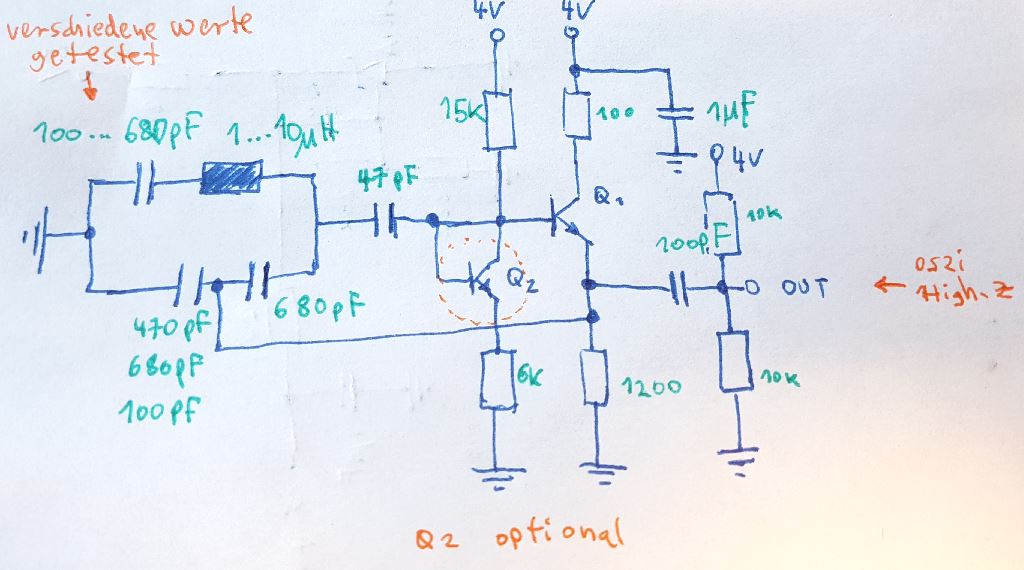 verschiedene werte
getestet
4V
4V
100... 680pF
1...10µH
15K
100
1µF
4V
47pF
Q1
10k
100pF
Q2
OUT
oszi
High-Z
470pF
680pF
100pF
680pF
6K
1200
10k
Q2 optional